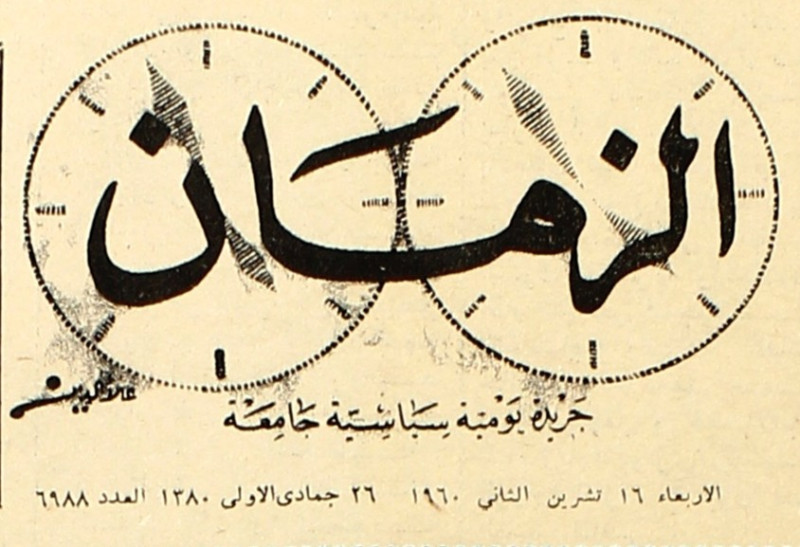 الزمان
علاء الدين
جَرْيدة يَوْميّة سِيَاسِيّة جَامِعَة
الاربعاء ١٦ تشرين الثاني ١٩٦٠ ٢٦ جمادى الاولى ١٣٨٠ العدد ٦٩٨٨